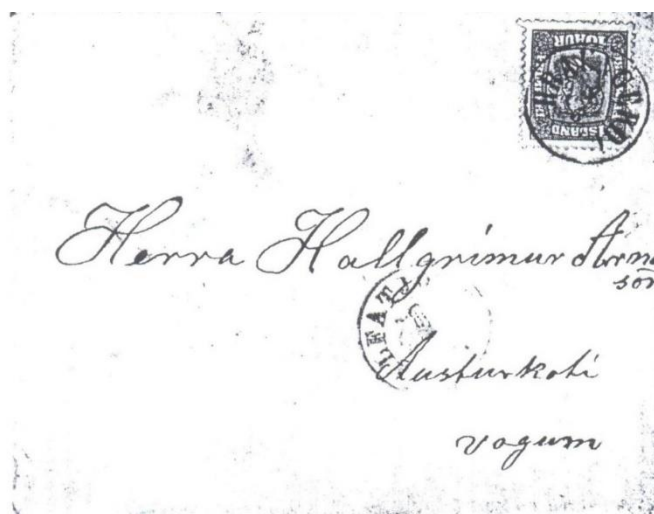 ISLAND
Herra Hallgrímur Árna
son
Austurkoti
Vogum